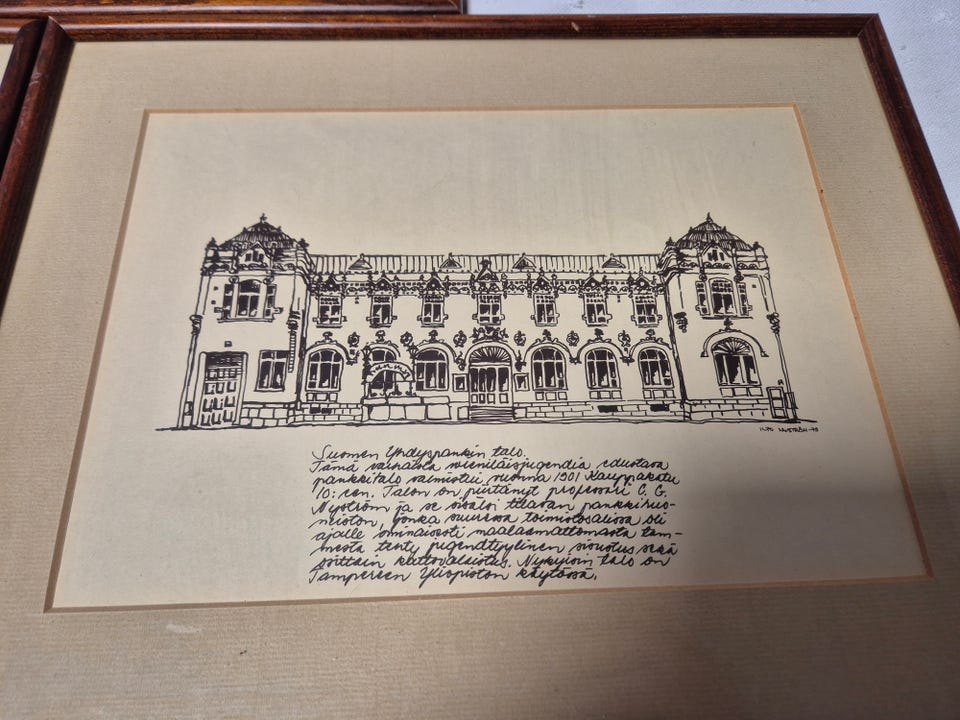 Suomen Yhdyspankin talo.
Tämä varhaista wieniläisjugendia edustava
pankkitalo valmistui vuonna 1901 Kauppakatu
10:een. Talon on piirtänyt professori C. G.
Nyström ja se sisälsi tilavan pankkihuo-
neiston, jonka suuressa toimistosalissa oli
ajalle ominaisesti maalaamattomasta tam-
mesta tehty jugendtyylinen sisustus sekä
soittain kattovalaistus. Nykyisin talo on
Tampereen Yliopiston käytössä.